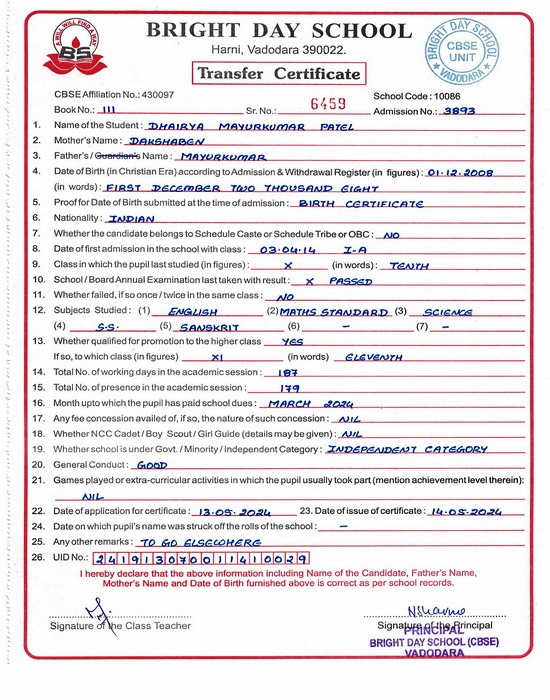 BRIGHT DAY SCHOOL
Harni, Vadodara 390022.
WILL WILL FIND A WAY
BS
BRIGHT DAY SCHOOL
CBSE
UNIT
VADODARA
Transfer Certificate
CBSE Affiliation No.: 430097 School Code : 10086
Book No.: III Sr. No.: 6459 Admission No.: 3893
1. Name of the Student : DHAIRYA MAYURKUMAR PATEL
2. Mother's Name : DAKSHABEN
3. Father's / Guardian's Name : MAYURKUMAR
4. Date of Birth (in Christian Era) according to Admission & Withdrawal Register (in figures) : 01.12.2008
(in words) : FIRST DECEMBER TWO THOUSAND EIGHT
5. Proof for Date of Birth submitted at the time of admission : BIRTH CERTIFICATE
6. Nationality : INDIAN
7. Whether the candidate belongs to Schedule Caste or Schedule Tribe or OBC : NO
8. Date of first admission in the school with class : 03.04.14 I-A
9. Class in which the pupil last studied (in figures) : X (in words) : TENTH
10. School / Board Annual Examination last taken with result : X PASSED
11. Whether failed, if so once / twice in the same class : NO
12. Subjects Studied : (1) ENGLISH (2) MATHS STANDARD (3) SCIENCE
(4) S.S. (5) SANSKRIT (6) - (7) -
13. Whether qualified for promotion to the higher class YES
If so, to which class (in figures) XI (in words) ELEVENTH
14. Total No. of working days in the academic session : 187
15. Total No. of presence in the academic session : 179
16. Month upto which the pupil has paid school dues : MARCH 2024
17. Any fee concession availed of, if so, the nature of such concession : NIL
18. Whether NCC Cadet / Boy Scout / Girl Guide (details may be given) : NIL
19. Whether school is under Govt. / Minority / Independent Category : INDEPENDENT CATEGORY
20. General Conduct : GOOD
21. Games played or extra-curricular activities in which the pupil usually took part (mention achievement level therein):
NIL
22. Date of application for certificate : 13.05.2024 23. Date of issue of certificate : 14.05.2024
24. Date on which pupil's name was struck off the rolls of the school : -
25. Any other remarks : TO GO ELSEWHERE
26. UID No.: 241913070011410029
I hereby declare that the above information including Name of the Candidate, Father's Name,
Mother's Name and Date of Birth furnished above is correct as per school records.
Signature of the Class Teacher Signature of the Principal
PRINCIPAL
BRIGHT DAY SCHOOL (CBSE)
VADODARA